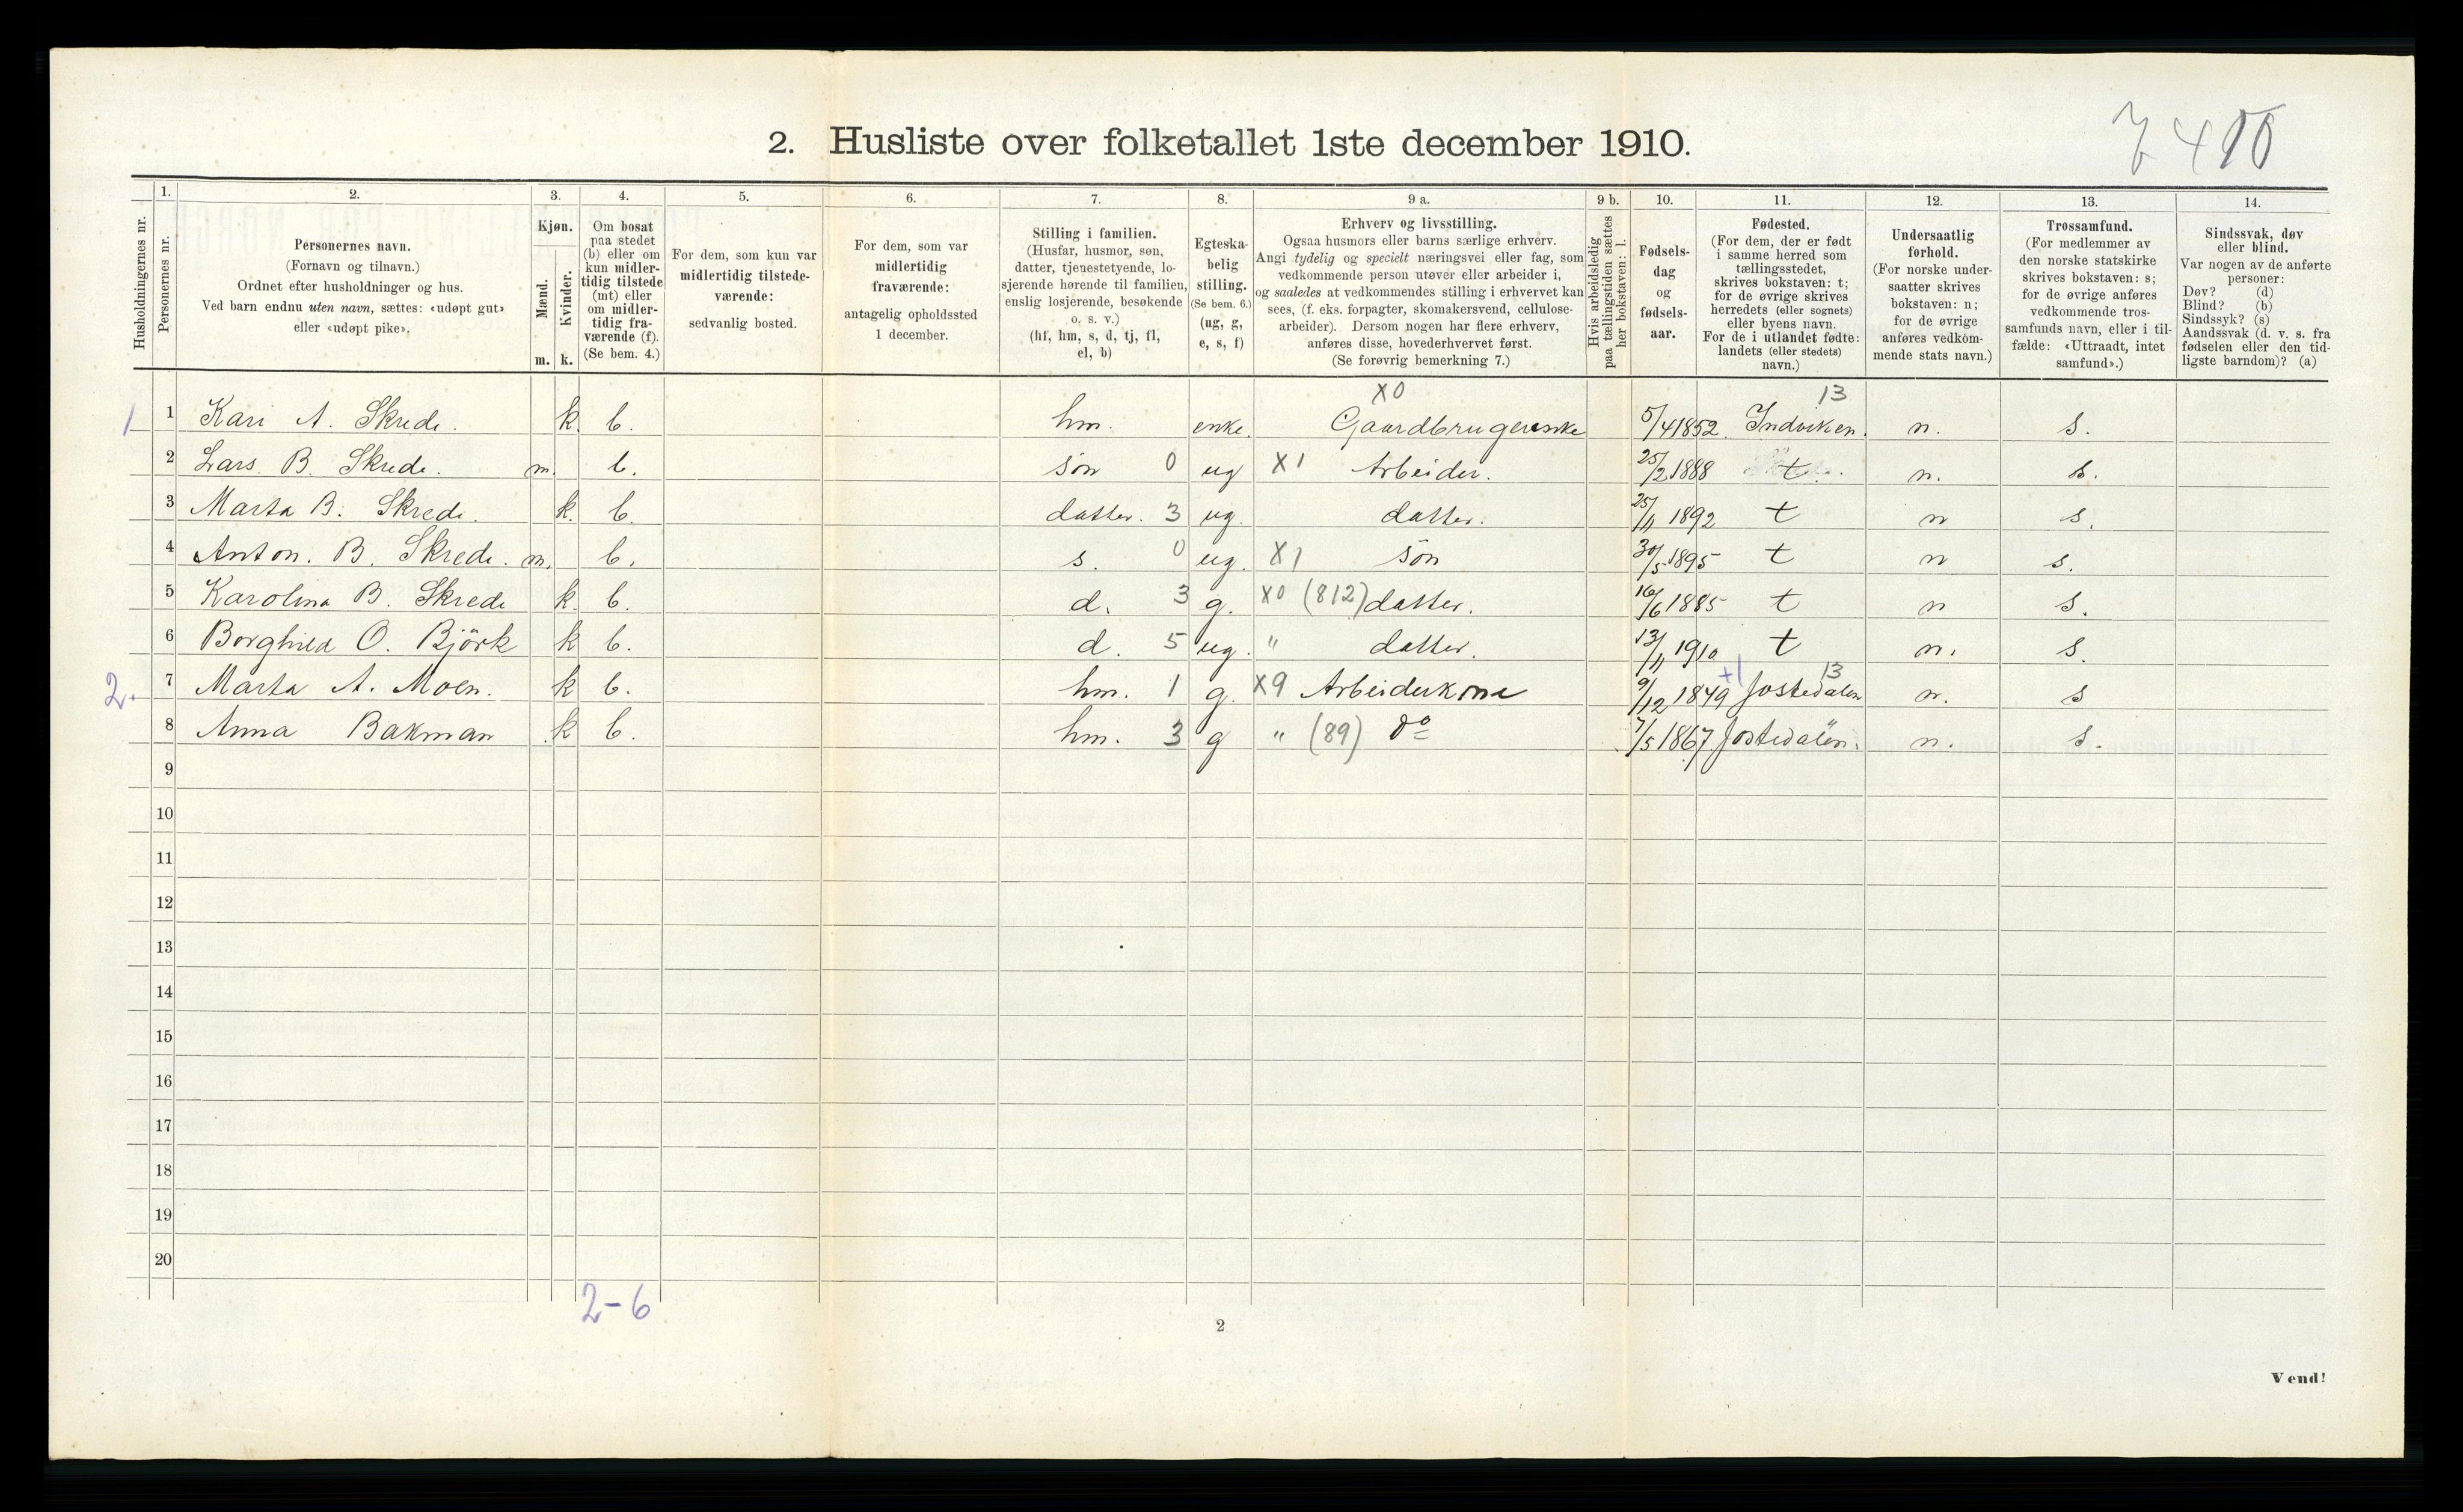 7410
2. Husliste over folketallet 1ste december 1910.
Husholdningernes nr.
1. Personernes nr.
2. Personernes navn.
(Fornavn og tilnavn.)
Ordnet efter husholdninger og hus.
Ved barn endnu uten navn, sættes: «udøpt gut»
eller «udøpt pike».
3. Kjøn.
Mænd. m.
Kvinder. k.
4. Om bosat
paa stedet
(b) eller om
kun midler-
tidig tilstede
(mt) eller
om midler-
tidig fra-
værende (f).
(Se bem. 4.)
5. For dem, som kun var
midlertidig tilstede-
værende:
sedvanlig bosted.
6. For dem, som var
midlertidig
fraværende:
antagelig opholdssted
1 december.
7. Stilling i familien.
(Husfar, husmor, søn,
datter, tjenestetyende, lo-
sjerende hørende til familien,
enslig losjerende, besøkende
o. s. v.)
(hf, hm, s, d, tj, fl,
el, b)
8. Egteska-
belig
stilling.
(Se bem. 6.)
(ug, g,
e, s, f)
9 a. Erhverv og livsstilling.
Ogsaa husmors eller barns særlige erhverv.
Angi tydelig og specielt næringsvei eller fag, som
vedkommende person utøver eller arbeider i,
og saaledes at vedkommendes stilling i erhvervet kan
sees, (f. eks. forpagter, skomakersvend, cellulose-
arbeider). Dersom nogen har flere erhverv,
anføres disse, hovederhvervet først.
(Se forøvrig bemerkning 7.)
9 b. Hvis arbeidsledig
paa tællingstiden sættes
her bokstaven: l.
10. Fødsels-
dag
og
fødsels-
aar.
11. Fødested.
(For dem, der er født
i samme herred som
tællingsstedet,
skrives bokstaven: t;
for de øvrige skrives
herredets (eller sognets)
eller byens navn.
For de i utlandet fødte:
landets (eller stedets)
navn.)
12. Undersaatlig
forhold.
(For norske under-
saatter skrives
bokstaven: n;
for de øvrige
anføres vedkom-
mende stats navn.)
13. Trossamfund.
(For medlemmer av
den norske statskirke
skrives bokstaven: s;
for de øvrige anføres
vedkommende tros-
samfunds navn, eller i til-
fælde: «Uttraadt, intet
samfund».)
14. Sindssvak, døv
eller blind.
Var nogen av de anførte
personer:
Døv? (d)
Blind? (b)
Sindssyk? (s)
Aandssvak (d. v. s. fra
fødselen eller den tid-
ligste barndom)? (a)
X0 13
1 1 Kari A. Skrede. k. b. hm. enke. Gaardbrugerenke 5/4 1852 Indviken. n. s.
2 Lars B. Skrede. m. b. søn 0 ug X1 Arbeider. 25/2 1888 t. n. s.
3 Marta B. Skrede. k. b. datter. 3 ug. datter. 25/11 1892 t n s.
4 Anton. B. Skrede. m. b. s. 0 ug. X1 søn 30/5 1895 t n s.
5 Karolina B. Skrede k. b. d. 3 g. X0 (812) datter. 16/6 1885 t n s.
6 Borghild O. Björk k b. d. 5 ug. " datter. 13/11 1910 t n. s.
+1 13
2. 7 Marta A. Moen. k b. hm. 1 g. X9 Arbeiderkone 9/12 1849 Jostedalen n. s
8 Anna Bakman k b. hm. 3 g " (89) do 7/5 1867 Jostedalen. n. s.
9
10
11
12
13
14
15
16
17
18
19
20
2-6
2
Vend!